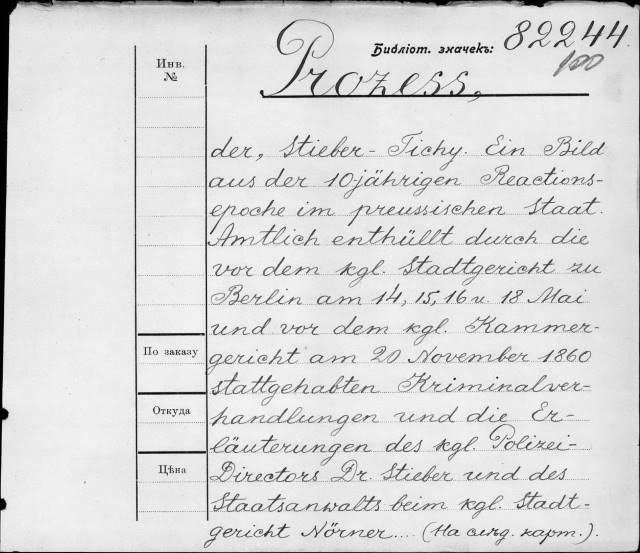 Библіот. значекъ: 82244
100
Prozess,
Инв.
№
der, Stieber-Tichy. Ein Bild
aus der 10-jährigen Reactions-
epoche im preussischen Staat.
Amtlich enthüllt durch die
vor dem kgl. Stadtgericht zu
Berlin am 14, 15, 16 u. 18 Mai
und vor dem kgl. Kammer-
По заказу
gericht am 20 November 1860
stattgehabten Kriminalver-
Откуда
handlungen und die Er-
läuterungen des kgl. Polizei-
Цѣна
Directors Dr. Stieber und des
Staatsanwalts beim kgl. Stadt-
gericht Nörner.... (На слѣд. карт.).